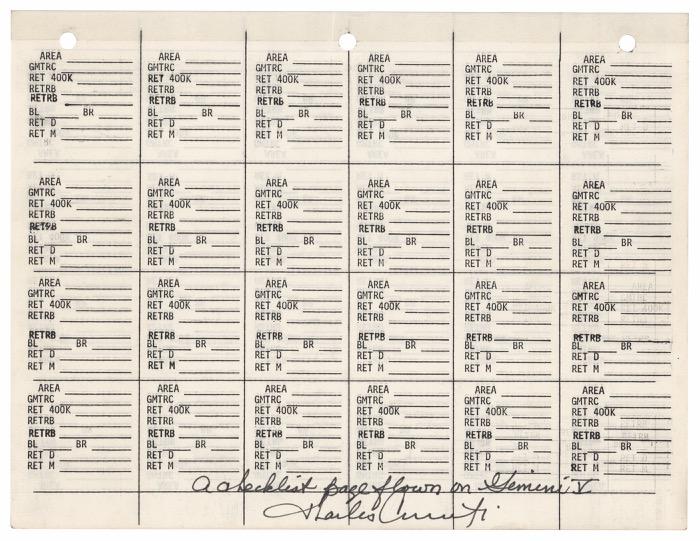 AREA AREA AREA AREA AREA AREA
GMTRC GMTRC GMTRC GMTRC GMTRC GMTRC
RET 400K RET 400K RET 400K RET 400K RET 400K RET 400K
RETRB RETRB RETRB RETRB RETRB RETRB
RETRB RETRB RETRB RETRB RETRB RETRB
BL BR BL BR BL BR BL BR BL BR BL BR
RET D RET D RET D RET D RET D RET D
RET M RET M RET M RET M RET M RET M
AREA AREA AREA AREA AREA AREA
GMTRC GMTRC GMTRC GMTRC GMTRC GMTRC
RET 400K RET 400K RET 400K RET 400K RET 400K RET 400K
RETRB RETRB RETRB RETRB RETRB RETRB
RETRB RETRB RETRB RETRB RETRB RETRB
BL BR BL BR BL BR BL BR BL BR BL BR
RET D RET D RET D RET D RET D RET D
RET M RET M RET M RET M RET M RET M
AREA AREA AREA AREA AREA AREA
GMTRC GMTRC GMTRC GMTRC GMTRC GMTRC
RET 400K RET 400K RET 400K RET 400K RET 400K RET 400K
RETRB RETRB RETRB RETRB RETRB RETRB
RETRB RETRB RETRB RETRB RETRB RETRB
BL BR BL BR BL BR BL BR BL BR BL BR
RET D RET D RET D RET D RET D RET D
RET M RET M RET M RET M RET M RET M
AREA AREA AREA AREA AREA AREA
GMTRC GMTRC GMTRC GMTRC GMTRC GMTRC
RET 400K RET 400K RET 400K RET 400K RET 400K RET 400K
RETRB RETRB RETRB RETRB RETRB RETRB
RETRB RETRB RETRB RETRB RETRB RETRB
BL BR BL BR BL BR BL BR BL BR BL BR
RET D RET D RET D RET D RET D RET D
RET M RET M RET M RET M RET M RET M
A checklist page flown on Gemini V
Charles